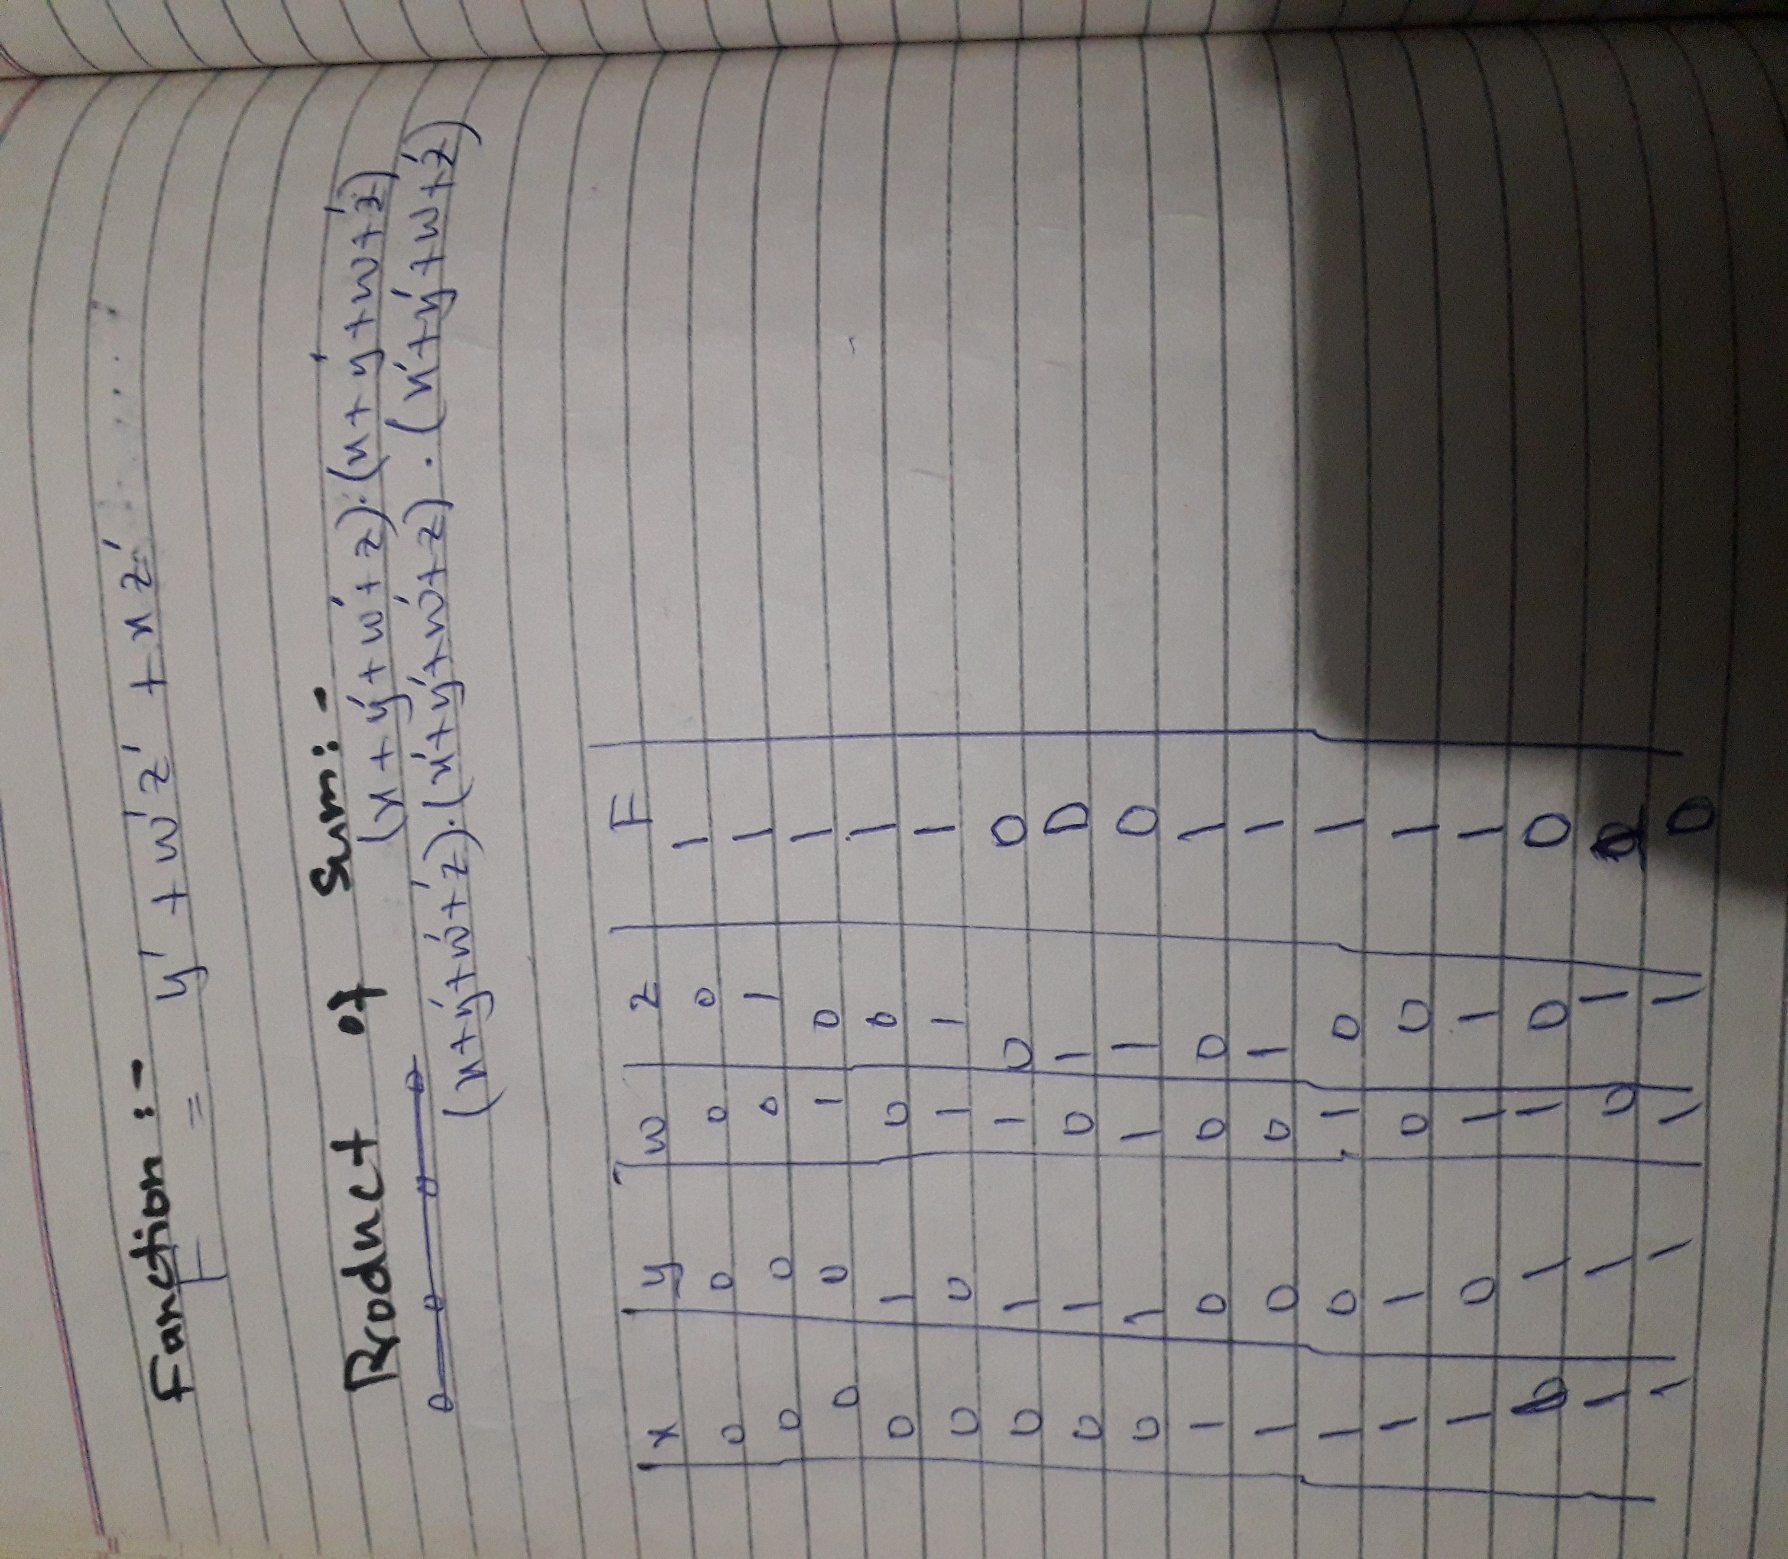 Fanction :-
F = y' + w'z' + xz'
Product of Sum:-
(x+y'+w'+z).(x+y'+w+z')
(x+y'+w'+z').(x'+y'+w'+z).(x'+y'+w+z')
x y w z F
0 0 0 0 1
0 0 0 1 1
0 0 1 0 1
0 1 0 0 1
0 0 1 1 1
0 1 1 0 0
0 1 0 1 0
0 1 1 1 0
1 0 0 0 1
1 0 0 1 1
1 0 1 0 1
1 1 0 0 1
1 0 1 1 1
1 1 0 0
1 1 0 1
1 1 1 1 0